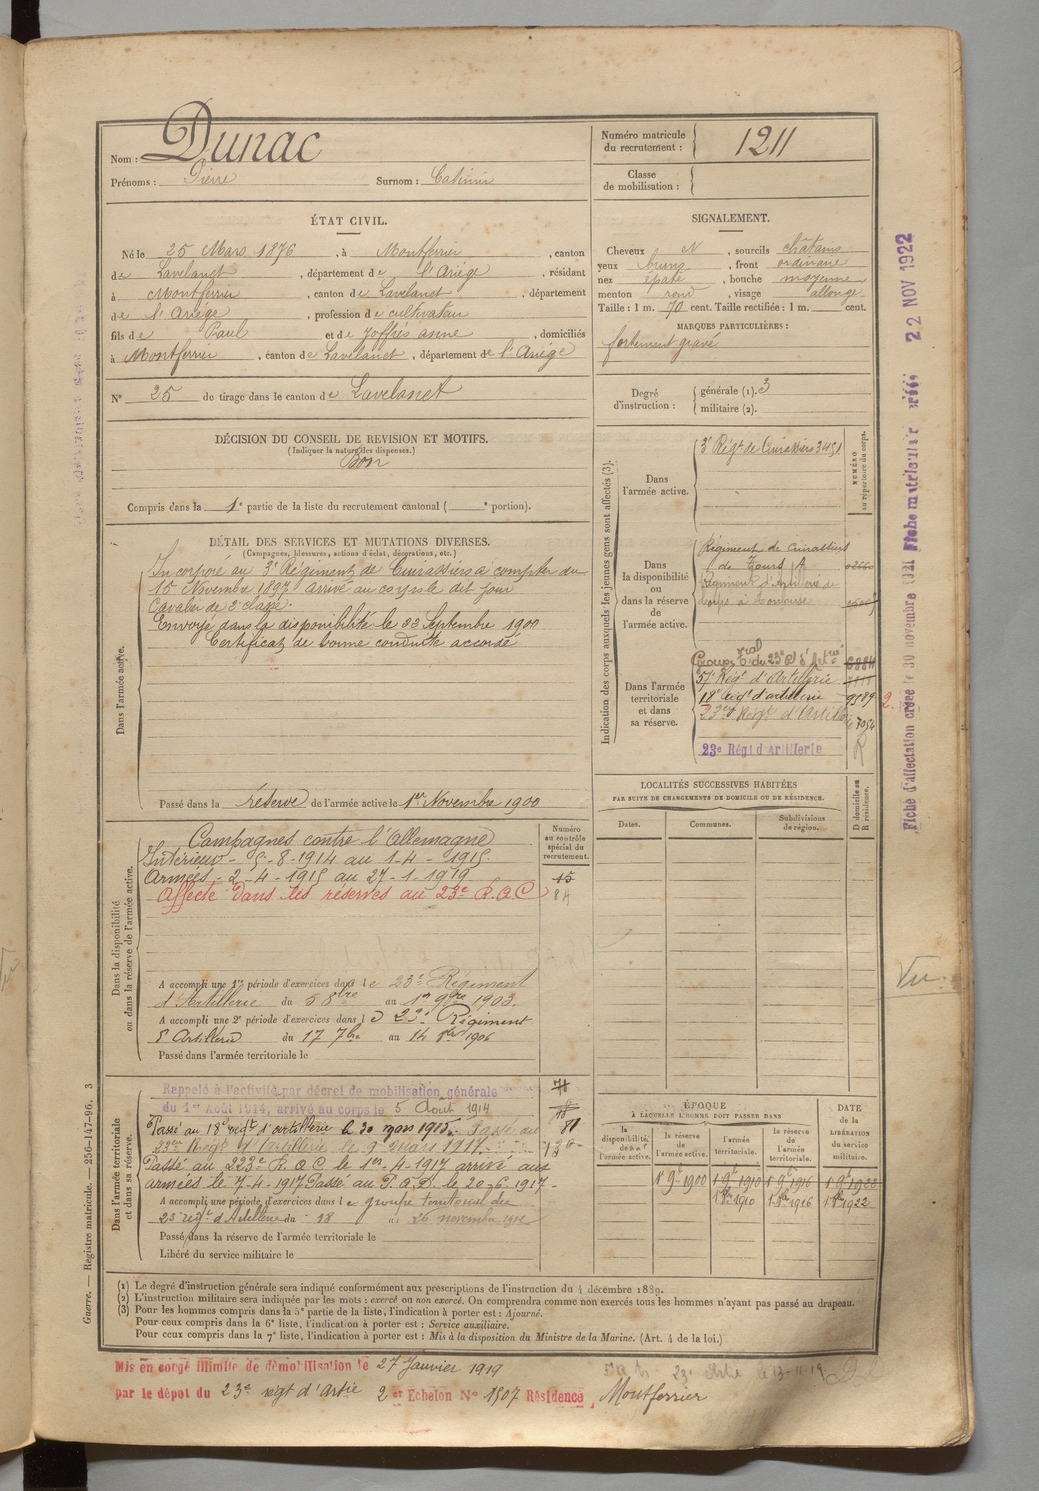 Nom : Dunac
Prénoms : Pierre Surnom : Casimir
Numéro matricule du recrutement : 1211
Classe de mobilisation :
ÉTAT CIVIL.
Né le 25 Mars 1876, à Montferrier, canton
de Lavelanet, département de l'Ariège, résidant
à Montferrier, canton de Lavelanet, département
de l'Ariège, profession de cultivateur
fils de Paul et de Joffrés anne, domiciliés
à Montferrier, canton de Lavelanet, département de l'Ariège
N° 25 de tirage dans le canton de Lavelanet
SIGNALEMENT.
Cheveux N, sourcils châtains
yeux bruns, front ordinaire
nez épaté, bouche moyenne
menton rond, visage allongé
Taille : 1 m. 70 cent. Taille rectifiée : 1 m. cent.
MARQUES PARTICULIÈRES :
fortement gravé
Degré d'instruction : générale (1). 3
militaire (2).
DÉCISION DU CONSEIL DE REVISION ET MOTIFS.
(Indiquer la nature des dispenses.)
Bon
Compris dans la 1e partie de la liste du recrutement cantonal ( e portion).
DÉTAIL DES SERVICES ET MUTATIONS DIVERSES.
(Campagnes, blessures, actions d'éclat, décorations, etc.)
Dans l'armée active.
Incorporé au 3e Régiment de Cuirassiers à compter du
15 Novembre 1897 arrivé au corps le dit jour
Cavalier de 2e classe.
Envoyé dans la disponibilité le 22 Septembre 1900
Certificat de bonne conduite accordé
Passé dans la réserve de l'armée active le 1er Novembre 1900
Indication des corps auxquels les jeunes gens sont affectés (3).
NUMÉRO au répertoire du corps.
Dans l'armée active.
3e Régt de Cuirassiers 3451
Dans la disponibilité ou dans la réserve de l'armée active.
Régiment de Cuirassiers
de Tours A
Régiment d'Artillerie de
corps à Toulouse
Dans l'armée territoriale et dans sa réserve.
57e Rég. d'Artillerie
18e régt d'artillerie 9589
23e Régt d'Artillerie
23e Régt d'Artillerie
R
LOCALITÉS SUCCESSIVES HABITÉES
PAR SUITE DE CHANGEMENTS DE DOMICILE OU DE RÉSIDENCE.
Dates. Communes. Subdivisions de région. D domicile ou R résidence.
Dans la disponibilité ou dans la réserve de l'armée active.
Numéro au contrôle spécial du recrutement.
Campagnes contre l'Allemagne
Intérieur - 5-8-1914 au 1-4-1915.
Armées - 2-4-1915 au 27-1-1919
Affecté dans les réserves au 23e R.A.C
15
84
A accompli une 1re période d'exercices dans le 23e Régiment
d'Artillerie du 5 8bre au 1er 9bre 1903.
A accompli une 2e période d'exercices dans le 23e Régiment
d'Artillerie du 17 7bre au 14 8bre 1906
Passé dans l'armée territoriale le
Dans l'armée territoriale et dans sa réserve.
Rappelé à l'activité par décret de mobilisation générale
du 1er Août 1914, arrivé au corps le 5 Août 1914
Passé au 18e régt d'artillerie le 20 mars 1915. Passé au
Régt d'Artillerie le 9 mars 1917.
Passé au 223e R.A.C le 1er-4-1917 arrivé aux
armées le 7-4-1917 Passé au P.A.D. le 20-6-1917
A accompli une période d'exercices dans le groupe territorial du
23e régt d'Artillerie du 18 au 26 novembre 1912
Passé dans la réserve de l'armée territoriale le
Libéré du service militaire le
ÉPOQUE
À LAQUELLE L'HOMME DOIT PASSER DANS
la disponibilité de l'armée active. la réserve de l'armée active. l'armée territoriale. la réserve de l'armée territoriale.
DATE de la LIBÉRATION du service militaire.
1er 9bre 1900 1er 9bre 1910 1er 9bre 1916 1er 9bre 1922
1er 8bre 1910 1er 8bre 1916 1er 8bre 1922
(1) Le degré d'instruction générale sera indiqué conformément aux prescriptions de l'instruction du 4 décembre 1889.
(2) L'instruction militaire sera indiquée par les mots : exercé ou non exercé. On comprendra comme non exercés tous les hommes n'ayant pas passé au drapeau.
(3) Pour les hommes compris dans la 5e partie de la liste, l'indication à porter est : Ajourné.
Pour ceux compris dans la 6e liste, l'indication à porter est : Service auxiliaire.
Pour ceux compris dans la 7e liste, l'indication à porter est : Mis à la disposition du Ministre de la Marine. (Art. 4 de la loi.)
Mis en congé illimité de démobilisation le 27 Janvier 1919
par le dépôt du 23e régt d'Artie 2er Echelon N° 1507 Résidence, Montferrier
Guerre. — Registre matricule. — 256-147-96. 3
Fiche d'affectation créée le 30 novembre 1921 Fiche matriculaire créée 22 NOV 1922
Vu.